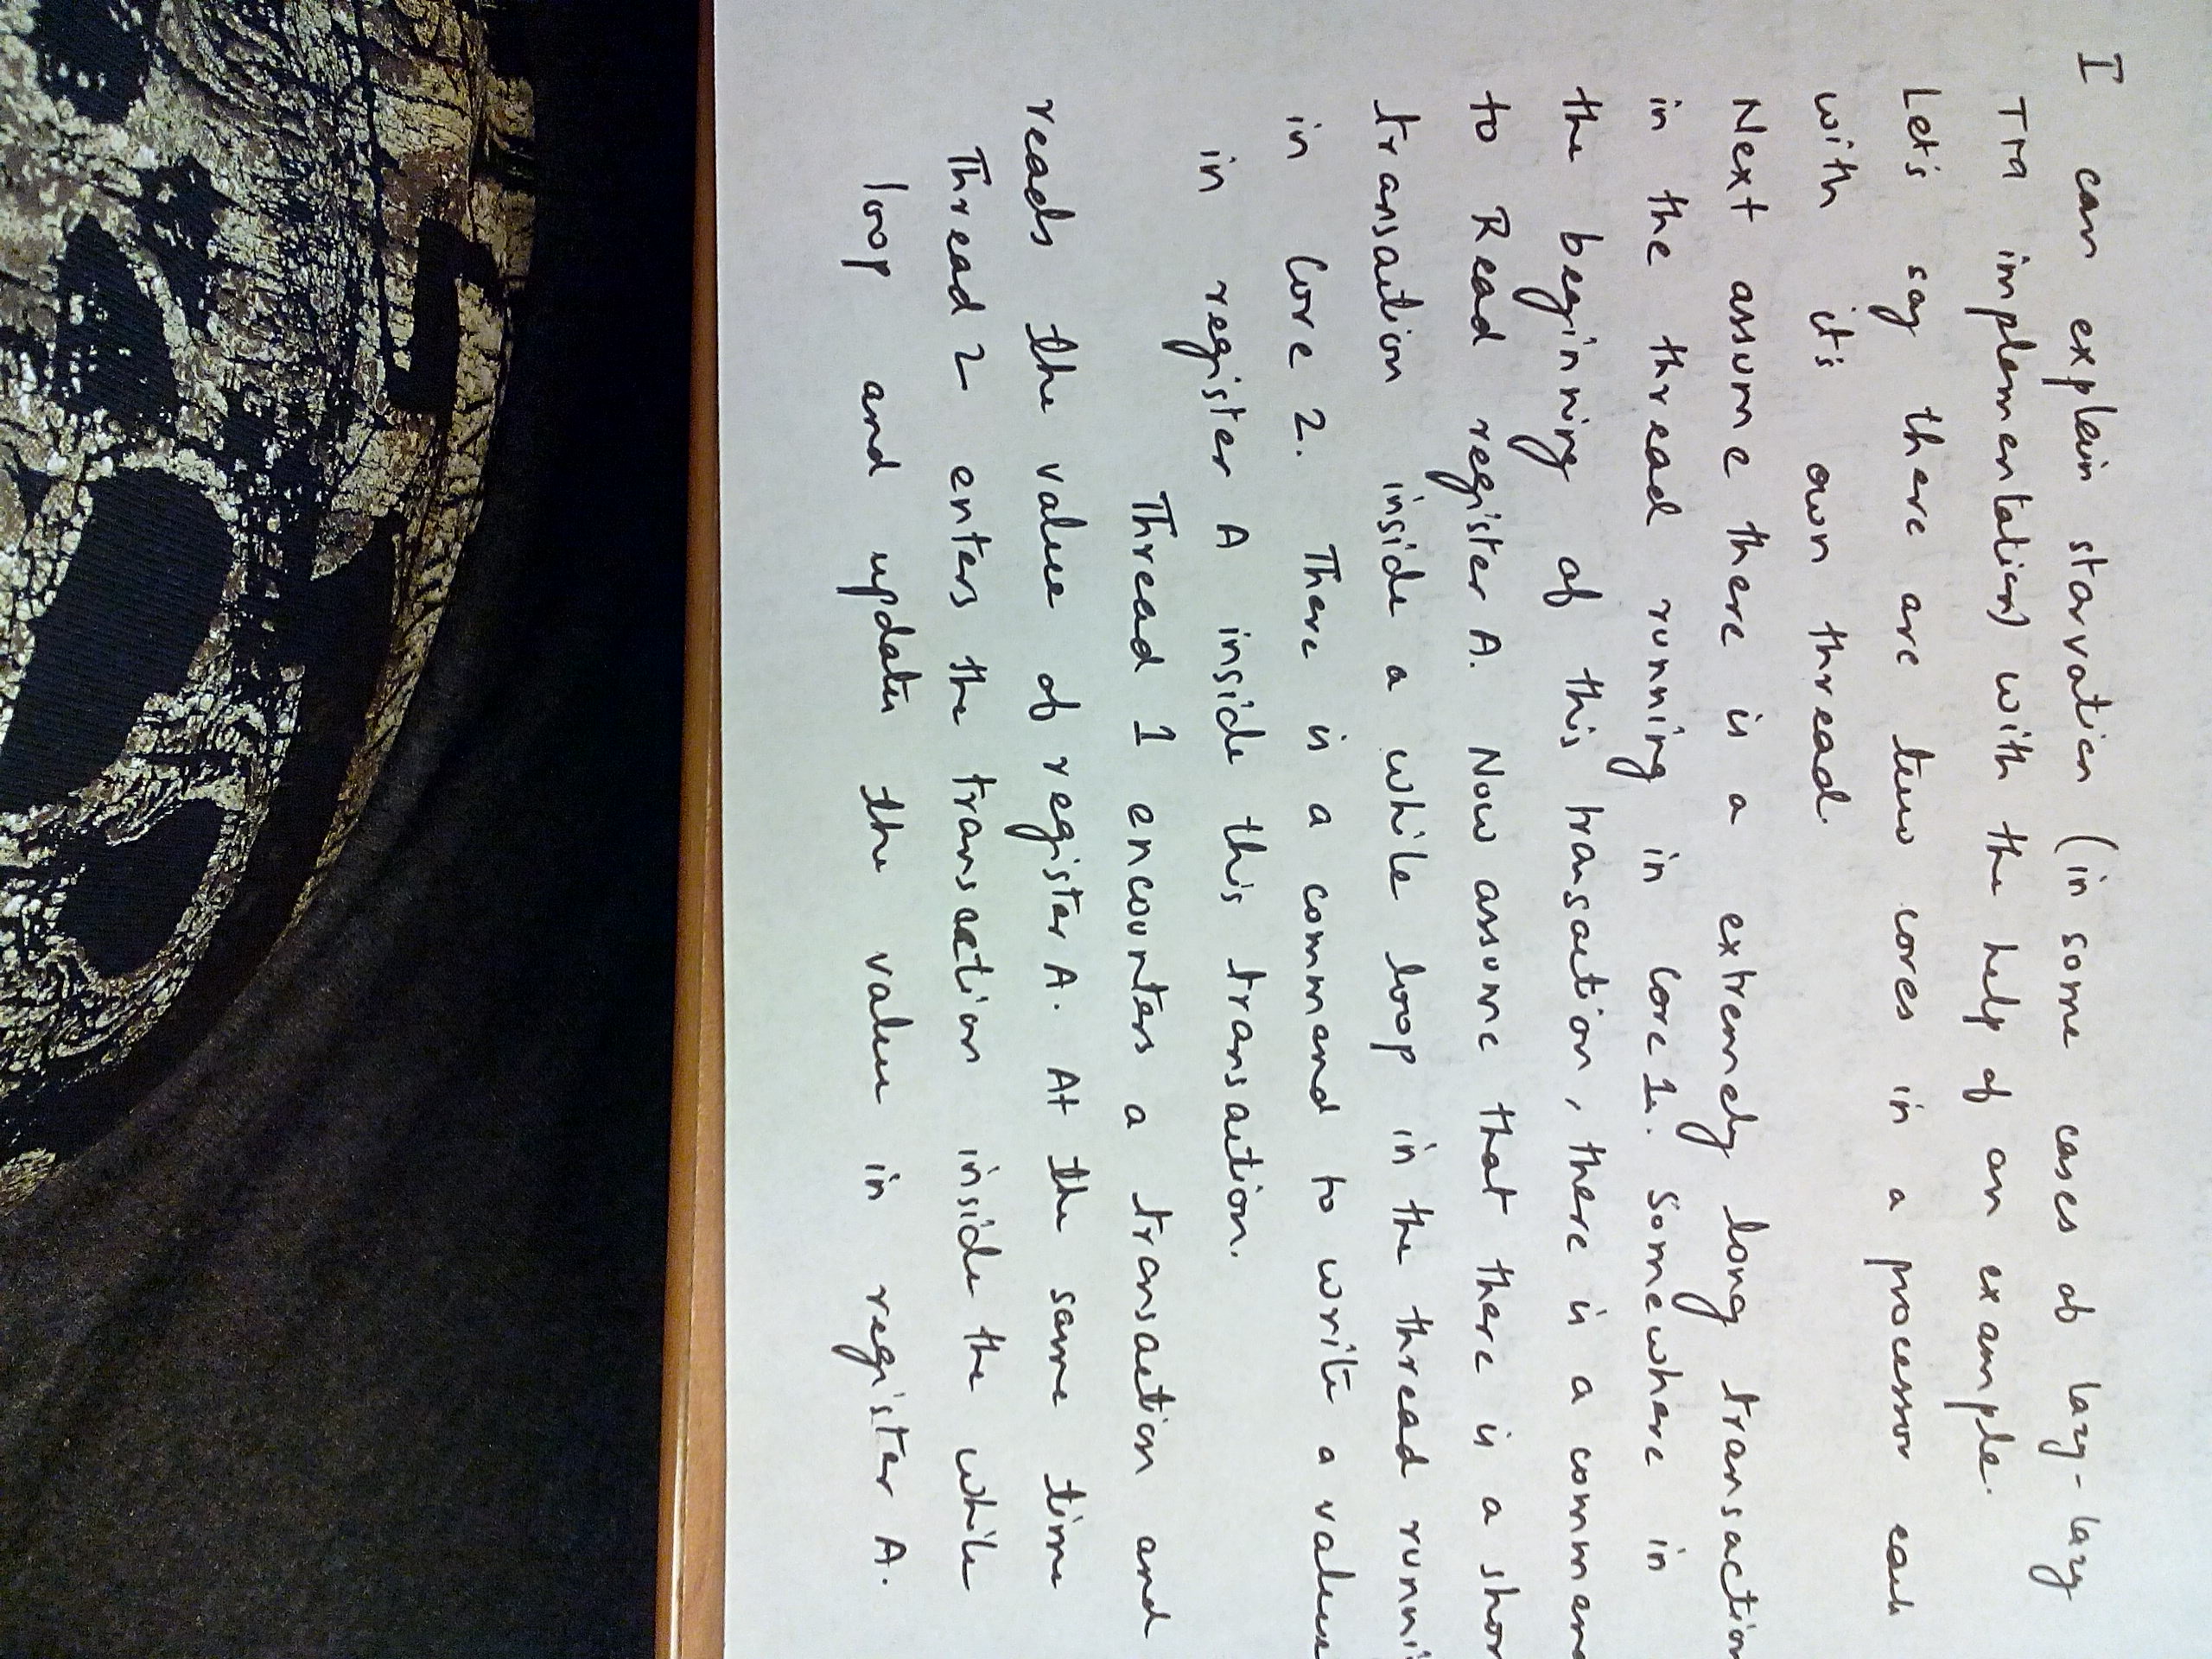 I can explain starvation (in some cases of lazy-lazy
TM implementation) with the help of an example.
Let's say there are two cores in a processor each
with it's own thread.
Next assume there is a extremely long transaction
in the thread running in Core 1. Somewhere in
the beginning of this transaction, there is a comman
to Read register A. Now assume that there is a shor
transaction inside a while loop in the thread runni
in Core 2. There is a command to write a value
in register A inside this transaction.
Thread 1 encounters a transaction and
reads the value of register A. At the same time
Thread 2 enters the transaction inside the while
loop and updates the value in register A.